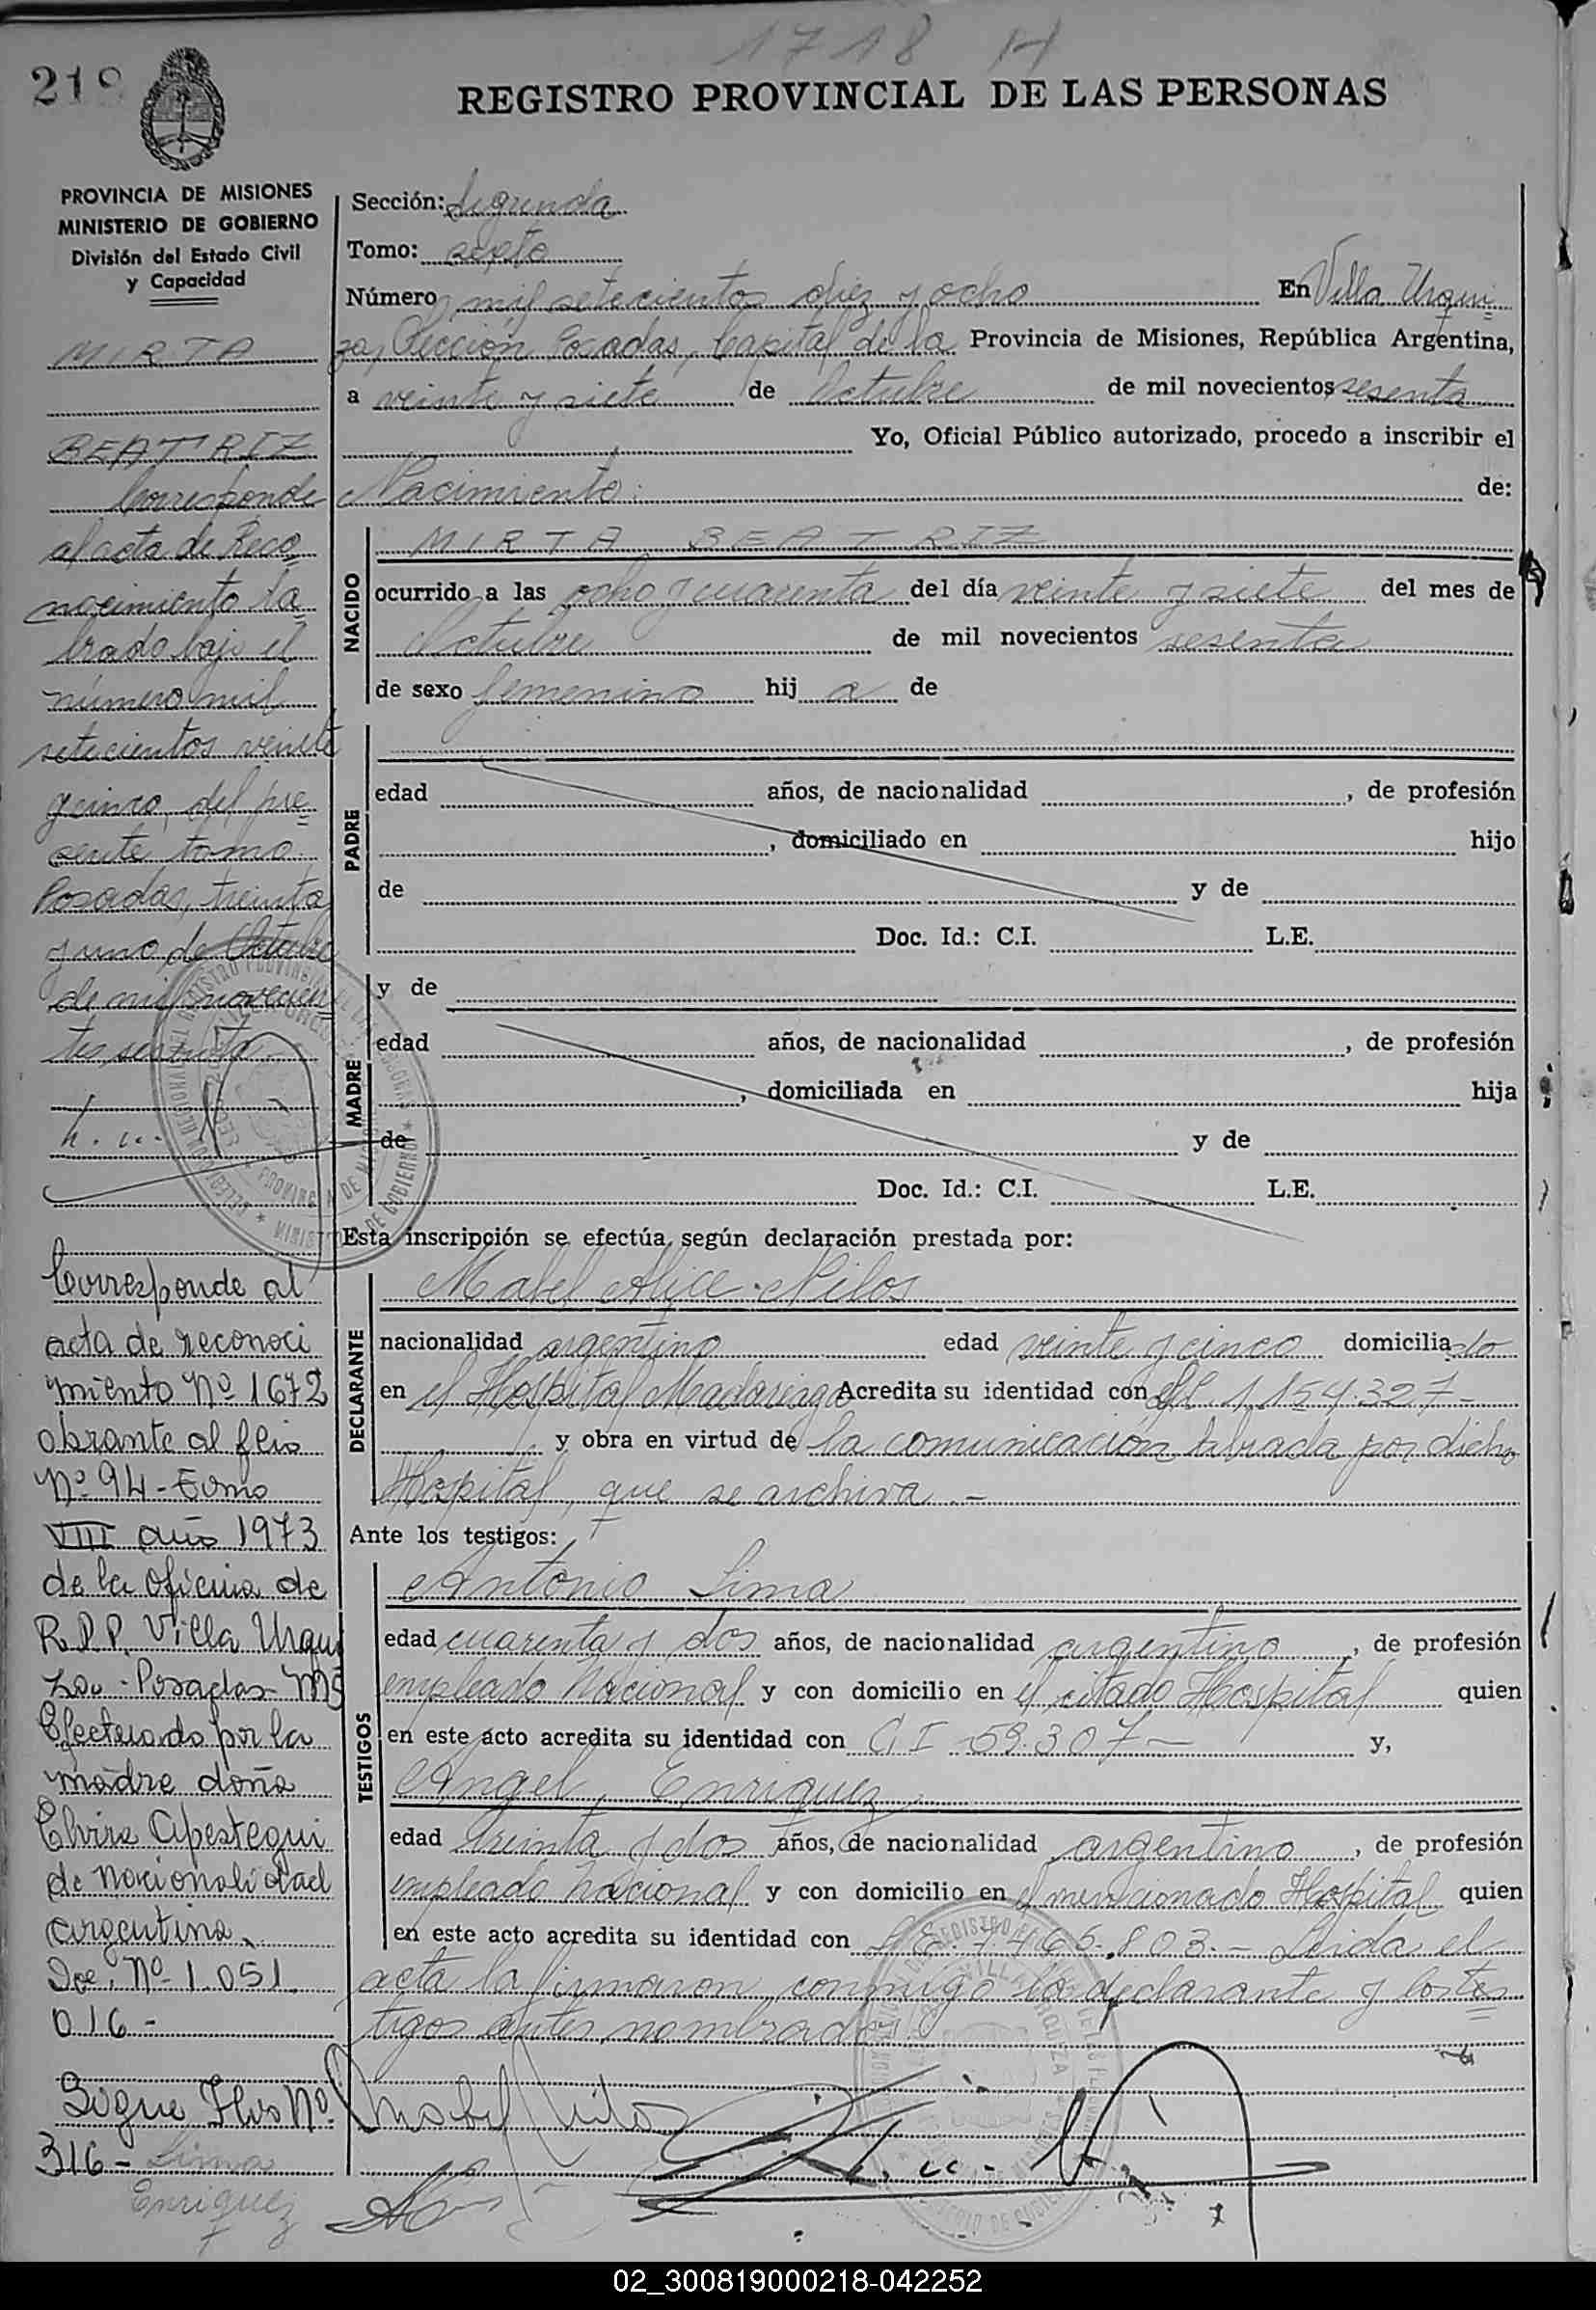 1718 H
219
REGISTRO PROVINCIAL DE LAS PERSONAS
PROVINCIA DE MISIONES
MINISTERIO DE GOBIERNO
División del Estado Civil
y Capacidad
MIRTA
BEATRIZ
Corresponde
al acta de Reco
nocimiento la
brado bajo el
número mil
setecientos veinte
y cinco, del pre
sente tomo.
Posadas, treinta
y uno de Octubre
de mil novecien
tos sesenta
Corresponde al
acta de reconoci
miento Nº 1672
obrante al flio
Nº 94 - Tomo
VIII año 1973
de la Oficina de
R.P.P. Villa Urqui
za - Posadas - Ms
Efectuado por la
madre doña
Elvira Apestegui
de nacionalidad
argentina,
Doc. Nº 1.051.
016 -
Sigue Flio Nº
316 - Lima
Enriquez
Sección: Segunda
Tomo: sexto
Número mil setecientos diez y ocho En Villa Urqui
za, Sección Posadas, Capital de la Provincia de Misiones, República Argentina,
a veinte y siete de Octubre de mil novecientos sesenta
Yo, Oficial Público autorizado, procedo a inscribir el
Nacimiento: de:
NACIDO
MIRTA BEATRIZ
ocurrido a las ocho y cuarenta del día veinte y siete del mes de
Octubre de mil novecientos sesenta
de sexo femenino hij a de
PADRE
edad años, de nacionalidad , de profesión
, domiciliado en hijo
de y de
Doc. Id.: C.I. L.E.
MADRE
y de
edad años, de nacionalidad , de profesión
, domiciliada en hija
de y de
Doc. Id.: C.I. L.E.
Esta inscripción se efectúa según declaración prestada por:
DECLARANTE
Mabel Alice Nilos
nacionalidad argentino edad veinte y cinco domicilia do
en el Hospital Madariaga Acredita su identidad con 1.154.327 -
y obra en virtud de la comunicación librada por dicho
Hospital, que se archiva. -
Ante los testigos:
TESTIGOS
Antonio Lima
edad cuarenta y dos años, de nacionalidad argentino, de profesión
empleado Nacional y con domicilio en el citado Hospital quien
en este acto acredita su identidad con C I 59.307 - y,
Angel Enriquez
edad treinta y dos años, de nacionalidad argentino, de profesión
empleado nacional y con domicilio en el mencionado Hospital quien
en este acto acredita su identidad con L.E. 7.465.803. - Leida el
acta la firmaron conmigo la declarante y los tes
tigos antes nombrados
Mabel Nilos
02_300819000218-042252